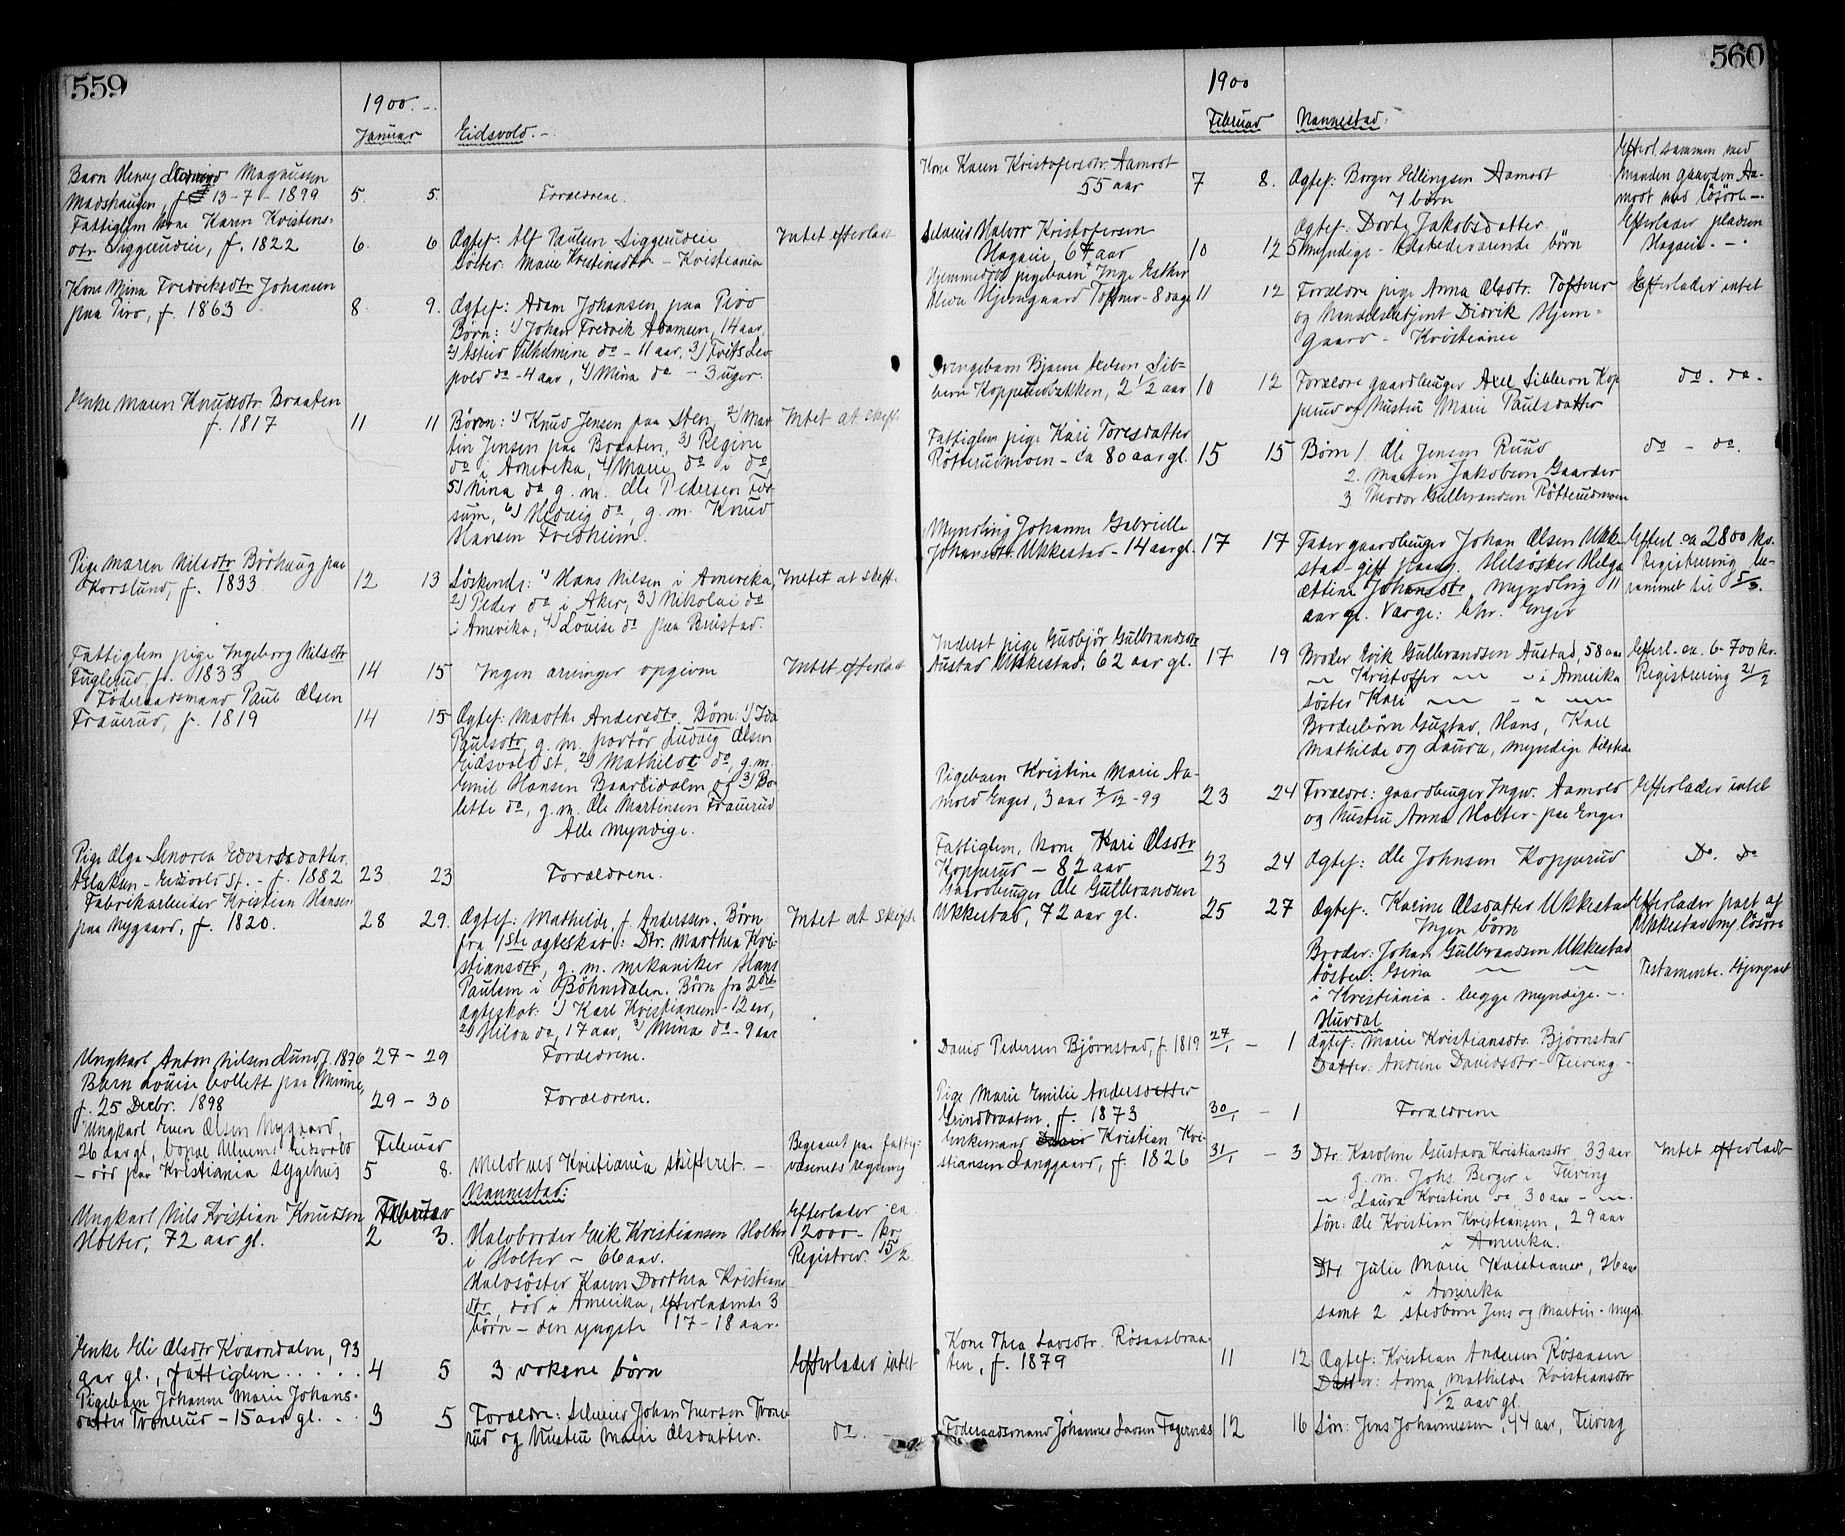 559
1900.-.
Januar
Eidsvold.-
Barn Henry Magnussen
Madshaugen, f. 13-7-1899
5. 5. Forældrene.
Fattiglem kone Karen Kristens-
dtr. Liggeudeie, f. 1822
6. 6 Ægtef: Alf Paulsen Liggeudeie
Intet efterladt
Søster: Marie Kristensdtr - Kristiania
Kone Mina Fredriksdtr Johansen
paa Piro, f. 1863
8. 9. Ægtef: Adam Johansen paa Piro
Børn: 1) Johan Fredrik Adamsen, 14 aar,
2) Astrid Vilhelmine do - 11 aar, 3) Frits Leo
pold do - 4 aar, 4) Mina do - 3 uger.
Enke Maren Knudsdtr. Braaten
f. 1817
11 11 Børn: 1) Knud Jensen paa Sten, 2) Mar
Intet at skifte
tin Jensen paa Braaten, 3) Regine
do i Amerika, 4) Marie do i do,
5) Nina do g. m. Ole Pedersen Fos-
sum, 6) Hedvig do, g. m. Knud
Hansen Fredheim.
Pige Maren Nilsdtr Börhaug paa
Korslund, f. 1833
12 13 Söskende: 1) Hans Nilsen i Amerika,
Intet at skifte
2) Peder do i Aker, 3) Nikolai do
i Amerika, 4) Louise do paa Brustad.
Fattiglem pige Ingeborg Nilsdtr
Fuglerud, f. 1833
14 15 Ingen arvinger opgivne
Intet efterladt
Föderaadsmand Paul Olsen
Fraurud, f. 1819
14 15 Ægtef: Marthe Andersdtr. Børn: 1) Ida
Paulsdtr, g. m. portör Ludvig Olsen
Eidsvold st, 2) Mathilde do, g. m.
Emil Hansen Baarlidalen og 3) Bo-
lette do, g. m. Ole Martinsen Fraurud
Alle myndige.
Pige Olga Lenorea Edvardsdatter
Aslaksen - Eidsvold st. - f. 1882
23 23 Forældrene.
Fabrikarbeider Kristian Hansen
paa Nygaard, f. 1820.
28 29. Ægtef: Mathilde, f. Anderssen. Børn
Intet at skifte
fra 1ste ægteskab: Dtr. Marthea Kri-
stiansdtr, g. m. mekaniker Hans
Paulsen i Böhnsdalen. Børn fra 2det
ægteskab: 1) Karl Kristiansen - 12 aar,
2) Hilda do, 17 aar, 3) Mina do - 9 aar
Ungkarl Anton Nilsen Lund f. 1876
27 - 29 Forældrene.
Barn Louise Collett paa Minne,
f. 25 Decbr. 1898
29 - 30 Forældrene.
Ungkarl Even Olsen Nygaard,
26 aar gl, bopæl Eidsvold
- död paa Kristiania sygehus
Februar
5 8. Meldt ved Kristiania skifteret. -
Begravet paa fattig-
væsenets regning
Nannestad:
Ungkarl Nils Kristian Knudsen
Holter, 72 aar gl.
Februar
2 3. Halvbroder Erik Kristiansen Holter
i Holter - 66 aar.
Efterlader ca
12000 - kr.
Registrer. 15/2.
Halvsöster Karen Dorthea Kristians
dtr, död i Amerika, efterladende 3
børn - den yngste 17-18 aar.
Enke Eli Olsdtr Kværndalen, 93
aar gl., fattiglem . . . . .
4 5 3 voksne børn
Efterlader intet
Pigebarn Johanne Marie Johans-
datter Tronerud - 15 aar gl. . .
3 5 Forældre: Johan Iverson Trone
rud og Hustru Marie Olsdatter.
do. -
560
1900
Februar
Nannestad:
Kone Karen Kristofersdtr. Aamodt
55 aar
7 8. Ægtef: Borger Ellingsen Aamodt
7 børn
Efterl. sammen med
manden gaarden Aa-
modt med løsøre -.
Halvor Kristofersen
Hagaeie, 67 aar
10 12 Ægtef: Dorte Jakobsdatter
5 myndige tilstedeværende börn
Efterlader pladsen
Hagaeie. -.
Hjemmedöbt pigebarn Inge Esther
Hjemgaard Toftner - 8 dage
11 12 Forældre pige Anna Olsdtr. Toftner
og Handelsbetjent Didrik Hjem-
gaard - Kristiania
Efterlader intet
Drengebarn Bjarne Axelsen Sib-
bern Kopperudbakken, 2 1/2 aar
10 12 Forældre gaardbruger Axel Sibbern Kop
perud og Hustru Marie Paulsdatter
do. do.
Fattiglem pige Kari Toresdatter
Rötterudmoen - ca 80 aar gl.
15 15 Børn 1. Ole Jensen Ruud
2. Martin Jakobsen Gaarder
3 Theodor Gulbrandsen Rötterudmoen
do - do.
Myndling Johanne Gabrielle
Johansdtr. Ukkestad - 14 aar gl.
17 17 Fader gaardbruger Johan Olsen Ukke
stad - gift paany. Helsösker Helga
Ættine Johansdtr, myndling 11
aar gl. Værge: Chr. Enger
Efterl. ca 2800 kr.
Registrering be-
rammet til 5/3.
Inderst pige Gudbjör Gulbrandsdtr
Austad Ukkestad, 62 aar gl.
17 19 Broder Erik Gulbrandsen Austad, 58 aar
— Kristoffer — - i Amerika
Söster Kari — - " —
Broderbörn Gustav, Hans, Karl
Mathilde og Laura, myndige tilstede
Efterl. ca. 6-700 kr.
Registrering 21/2
Pigebarn Kristine Marie Aa-
mold Enger, 3 aar 7/12-99
23 24 Forældre: gaardbruger Ingv. Aamold
og Hustru Anna Holter - paa Enger
Efterlader intet
Fattiglem, kone Kari Olsdtr
Kopperud - 82 aar
23 24 Ægtef: Ole Johnsen Kopperud
Do. Do
Gaardbruger Ole Gulbrandsen
Ukkestad, 72 aar gl.
25 27 Ægtef. Karine Olsdatter Ukkestad
Ingen børn
Broder: Johan Gulbrandsen Ukkestad
Söster: Gina — —
i Kristiania. begge myndige. -.
Efterlader part af
Ukkestad m/ løsøre
Testamente.
Hurdal
David Pedersen Bjørnstad, f. 1819
27/1 - 1 Ægtef: Marie Kristiansdtr. Bjørnstad
Datter: Andrine Davidsdtr - Feiring -
Pige Marie Emilie Andersdatter
Grindbraaten, f. 1873
30/1 - 1 Forældrene
Enkemand Kristian Kri-
stiansen Langgaard, f. 1826
31/1 - 3 Dtr. Karoline Gustava Kristiansdtr, 33 aar
g. m. Johs. Berger i Feiring
— Laura Kristine do 30 aar - —.
Sön: Ole Kristian Kristiansen, 29 aar
i Amerika.
Dtr Julie Marie Kristianse, 26 aar
i Amerika
samt 2 stedbørn Jens og Martin - mynd.
Intet efterladt
Kone Thea Larsdtr. Røsaasbraa-
ten, f. 1879
11 12 Ægtef: Kristian Andersen Røsaasen
Datter: Anna Mathilde Kristiansdtr
1/2 aar gl.
Föderaadsmand Johannes Larsen Fagernæs
12 16 Sön: Jens Johannessen, 44 aar, Feiring